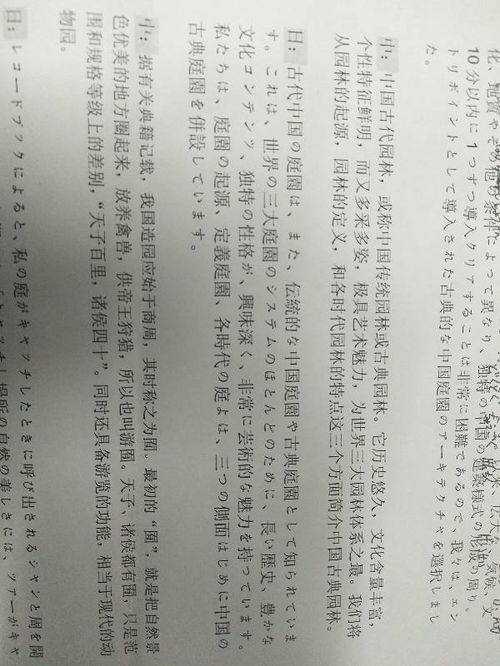 化、地質やその他の条件によって異なり、独特の中国の建築様式の形成
10 分以内に 1 つずつ導入クリアすることは非常に困難であるので、我々は、エン
トリポイントとして導入された古典的な中国庭園のアーキテクチャを選択しまし
た。
中：中国古代园林，或称中国传统园林或古典园林。它历史悠久，文化含量丰富，
个性特征鲜明，而又多采多姿，极具艺术魅力，为世界三大园林体系之最。我们将
从园林的起源，园林的定义，和各时代园林的特点这三个方面简介中国古典园林。
日：古代中国の庭園は、また、伝統的な中国庭園や古典庭園として知られていま
す。これは、世界の三大庭園のシステムのほとんどのために、長い歴史、豊かな
文化コンテンツ、独特の性格が、興味深く、非常に芸術的な魅力を持っています。
私たちは、庭園の起源、定義庭園、各時代の庭よは、三つの側面はじめに中国の
古典庭園を併設しています。
中：据有关典籍记载，我国造园应始于商周，其时称之为囿。最初的“囿”，就是把自然景
色优美的地方圈起来，放养禽兽，供帝王狩猎，所以也叫游囿。天子、诸侯都有囿，只是范
围和规格等级上的差别，“天子百里，诸侯四十”。同时还具备游览的功能，相当于现代的动
物园。
日：レコードブックによると、私の庭がキャッチしたときに呼び出されるシャンと周を開